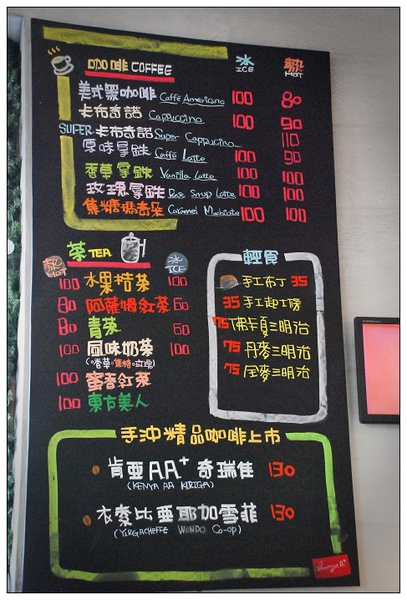 咖啡 COFFEE 冰 ICE 熱 HOT
美式黑咖啡 Caffé Americano 100 80
卡布奇諾 Cappuccino 100 90
SUPER 卡布奇諾 Super Cappuccino 110
原味拿鉄 Caffé Latte 100 90
香草拿鉄 Vanilla Latte 100 100
玫瑰拿鉄 Rose Syrup Latte 100 100
焦糖瑪奇朵 Caramel Machiato 100 100
茶 TEA
熱 HOT 冰 ICE
100 水果桔茶 100
80 阿薩姆紅茶 60
80 青茶 60
100 風味奶茶 100
(香草·焦糖·玫瑰)
100 蜜香紅茶
100 東方美人
輕食
手工布丁 35
35 手工起士條
75 佛卡夏三明治
75 丹麥三明治
75 全麥三明治
手沖精品咖啡上市
肯亞AA+ 奇瑞佳 130
(KENYA AA KIRIGA)
衣索比亞耶加雪菲 130
(YIRGACHEFFE WONDO Co-op)